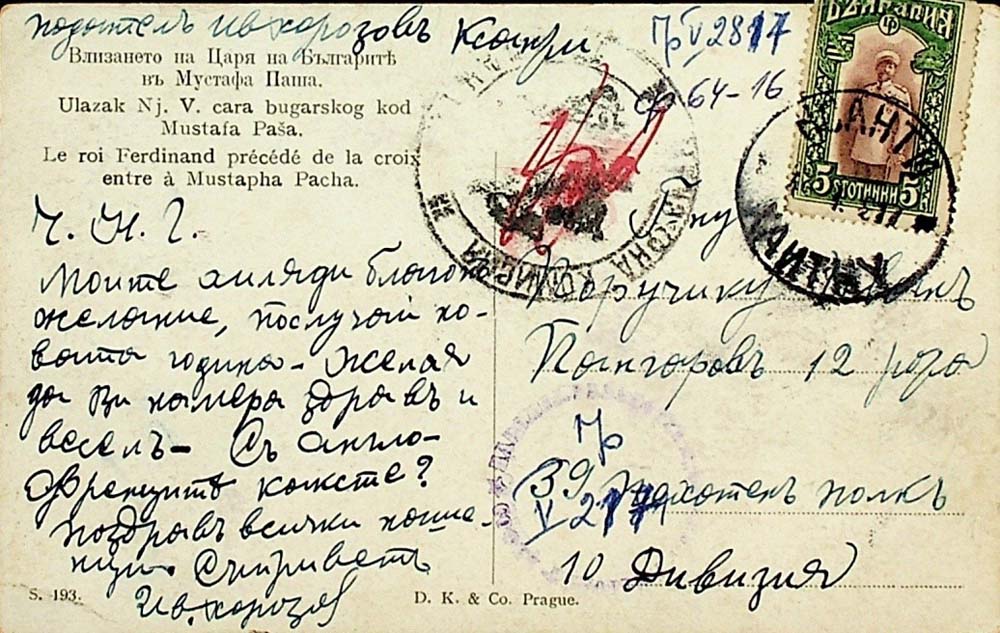 подателъ Ив. Хорозовъ Ксанти
Пр V 2817
ф 64-16
Влизането на Царя на Българитѣ
въ Мустафа Паша.
Ulazak Nj. V. cara bugarskog kod
Mustafa Paša.
Le roi Ferdinand précédé de la croix
entre à Mustapha Pacha.
БЪЛГАРИЯ
5 СТОТИНКИ 5
КСАНТИ
Ч. Н. Г.
Моите благо
желание, по случай но-
вата година - Желая
да Ви намера здравъ и
веселъ - Съ англо-
френцитѣ кажете?
Поздравъ всички наши
Съ приветъ
Ив. Хорозовъ
Г-ну
Поручику
Пангаровъ 12 рота
Пр
39 пехотенъ полкъ
V 2817
10 Дивизия
S. 193.
D. K. & Co. Prague.